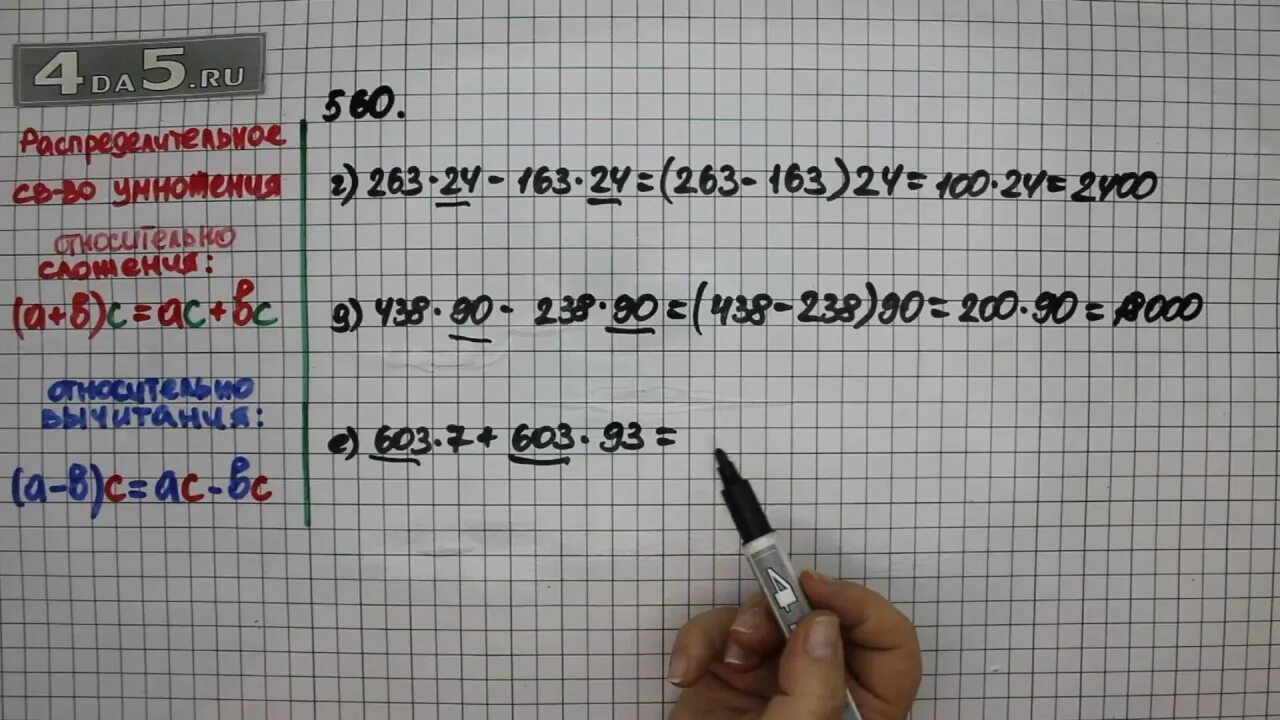 4DA5.RU
Распределительное
св-во умножения
относительно
сложения:
(а+в)с=ас+вс
относительно
вычитания:
(а-в)с=ас-вс
560.
г) 263·24-163·24=(263-163)24=100·24=2400
д) 438·90-238·90=(438-238)90=200·90=18000
е) 603·7+603·93=
4